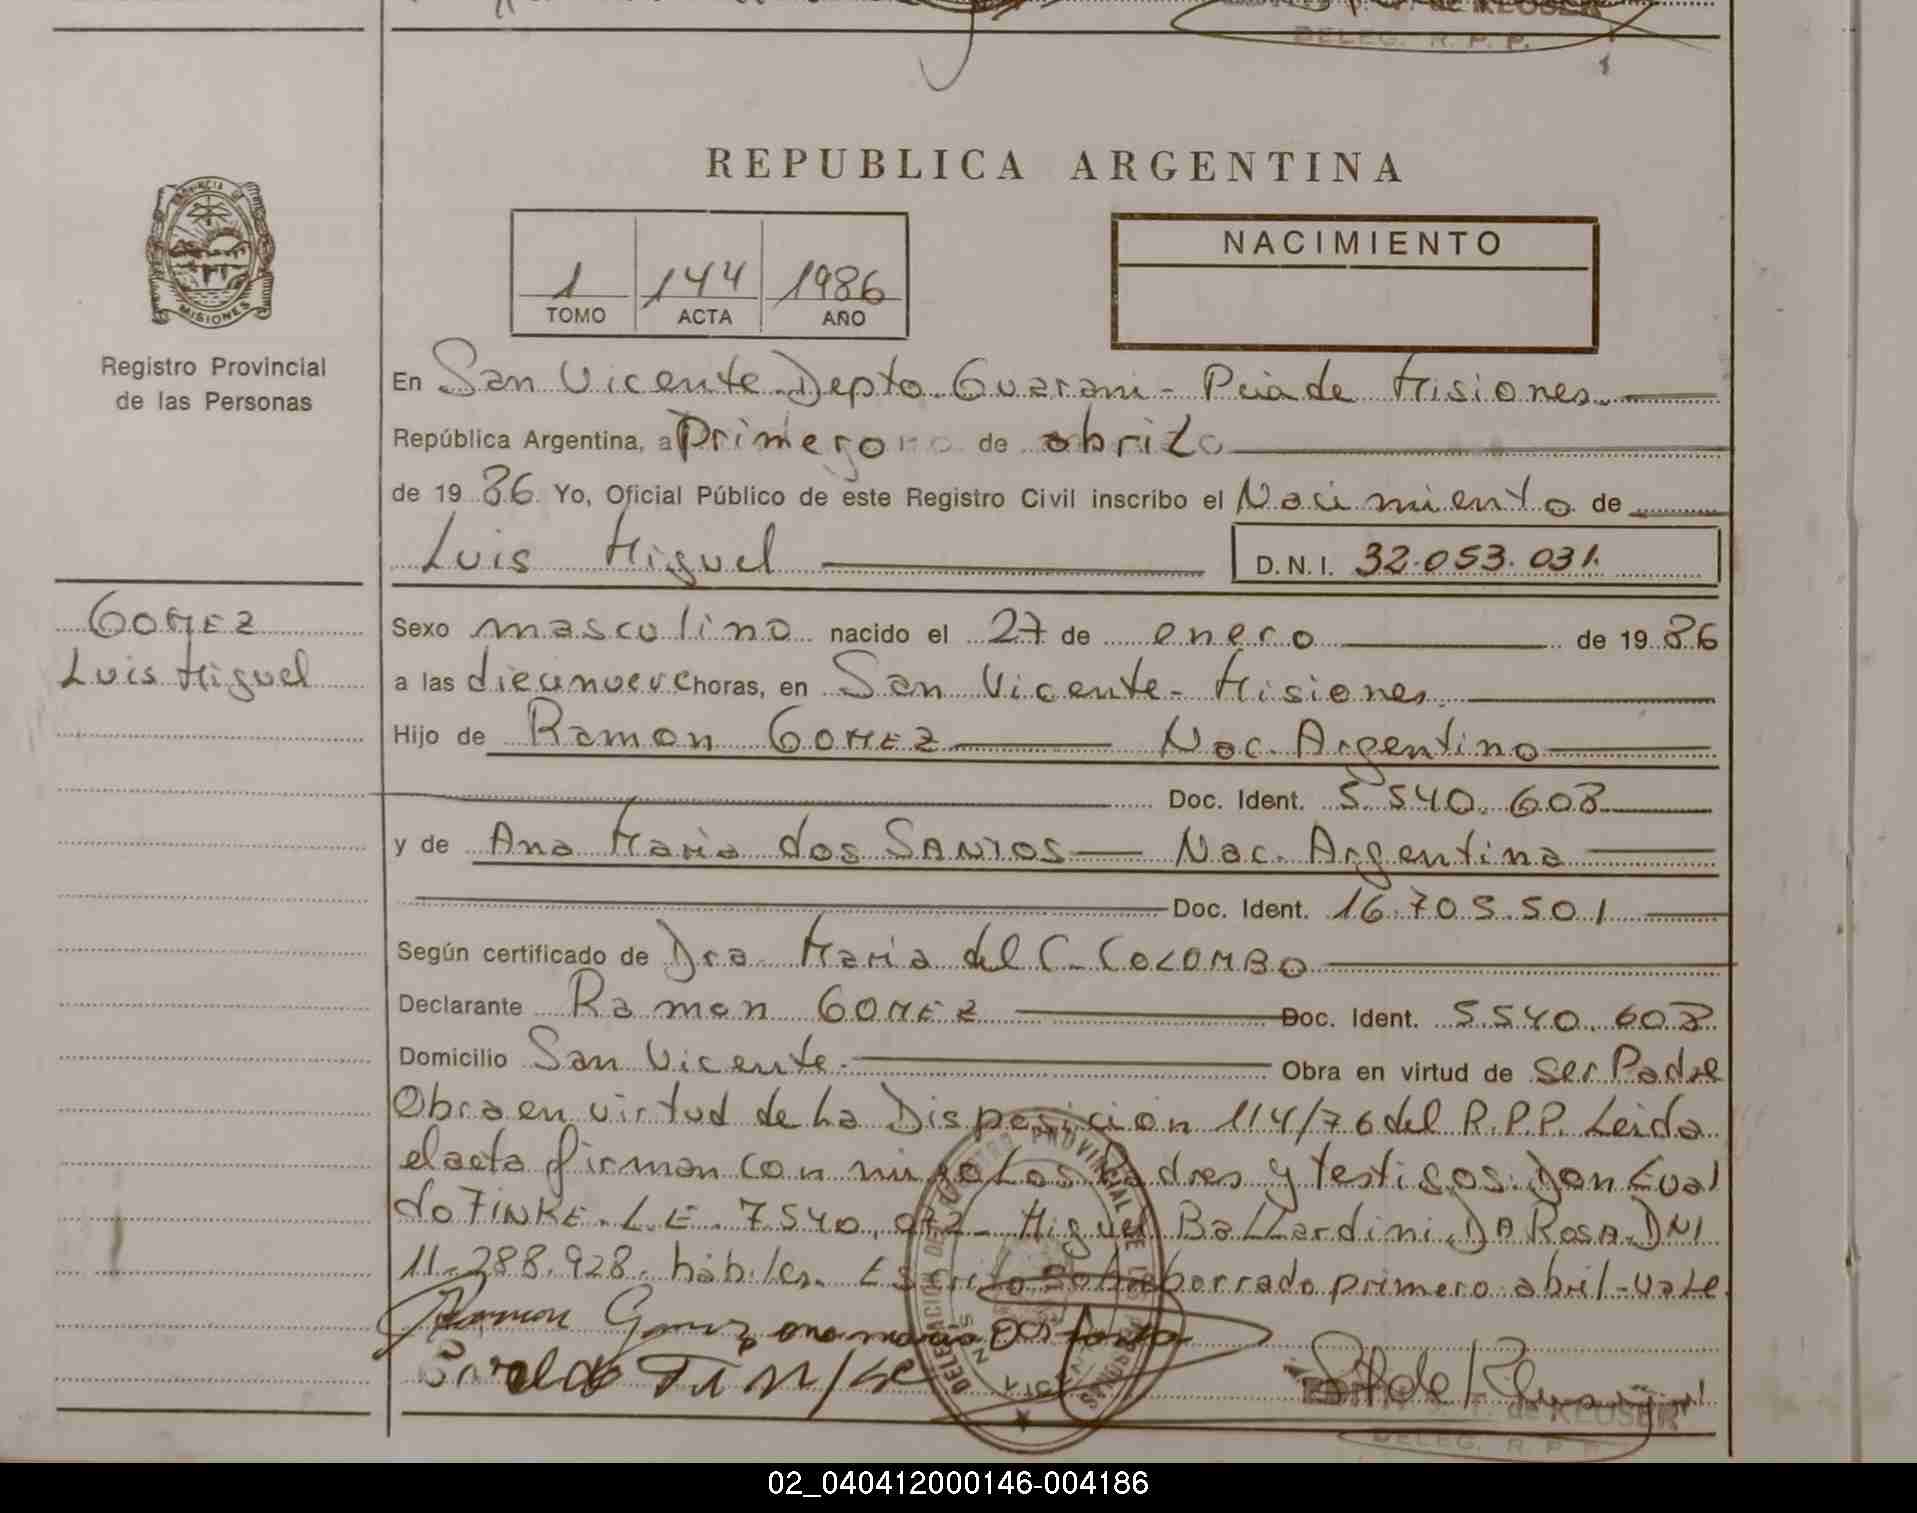 DELEG. R. P. P.
REPUBLICA ARGENTINA
PROVINCIA DE
MISIONES
Registro Provincial
de las Personas
1 144 1986
TOMO ACTA AÑO
NACIMIENTO
En San Vicente Depto. Guarani - Pcia de Misiones.
República Argentina, a Primero de abril
de 19 86 Yo, Oficial Público de este Registro Civil inscribo el Nacimiento de
Luis Miguel
D.N.I. 32.053.031.
GOMEZ
Luis Miguel
Sexo masculino nacido el 27 de enero de 19 86
a las diecinueve horas, en San Vicente - Misiones.
Hijo de Ramon GOMEZ Nac. Argentino
Doc. Ident. 5.540.608
y de Ana Maria dos SANTOS Nac. Argentina
Doc. Ident. 16.705.501
Según certificado de Dra Maria del C. COLOMBO
Declarante Ramon GOMEZ Doc. Ident. 5.540.608
Domicilio San Vicente. Obra en virtud de ser Padre
Obra en virtud de La Disposición 114/76 del R.P.P. Leida
el acta firman con migo Los Padres y testigos: Don Eval
do FINKE. L.E. 7540.972 - Miguel Ballardini DA ROSA. DNI
11.288.928. hábiles. Escrito sobreborrado primero abril - vale.
Ramon Gomez ana maria Dos Santos
Evaldo FINKE
de KLUSER
DELEG. R. P. P.
02_040412000146-004186